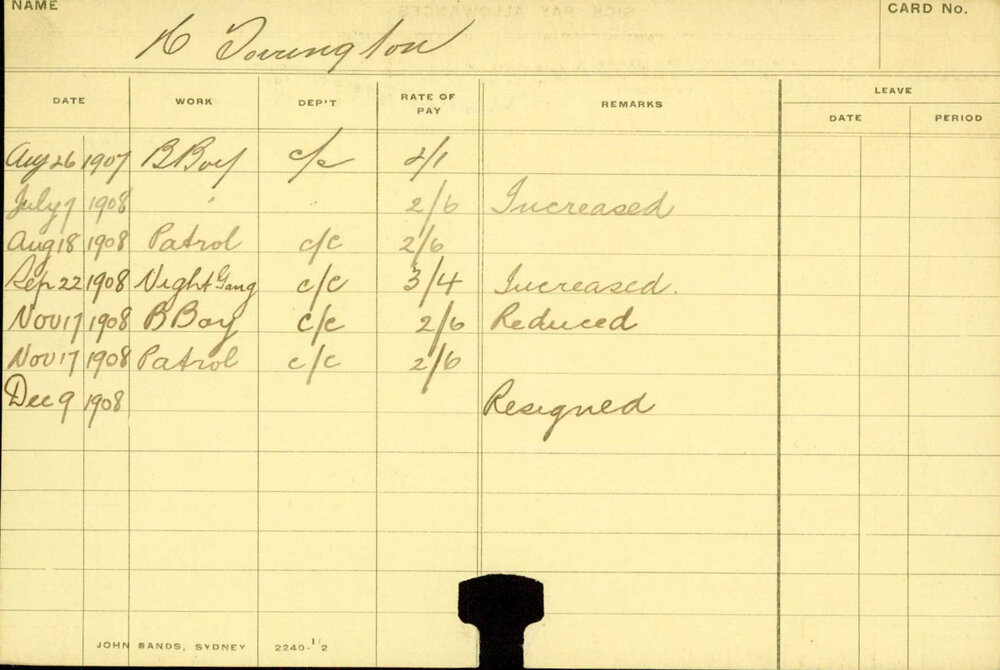 NAME
CARD No.
H Torrington
DATE WORK DEP'T RATE OF PAY REMARKS LEAVE
DATE PERIOD
Aug 26 1907 B Boy c/c 2/1
July 7 1908 2/6 Increased
Aug 18 1908 Patrol c/c 2/6
Sep 22 1908 Night Gang c/c 3/4 Increased.
Nov 17 1908 B Boy c/c 2/6 Reduced
Nov 17 1908 Patrol c/c 2/6
Dec 9 1908 Resigned
JOHN SANDS, SYDNEY 2240-1/2